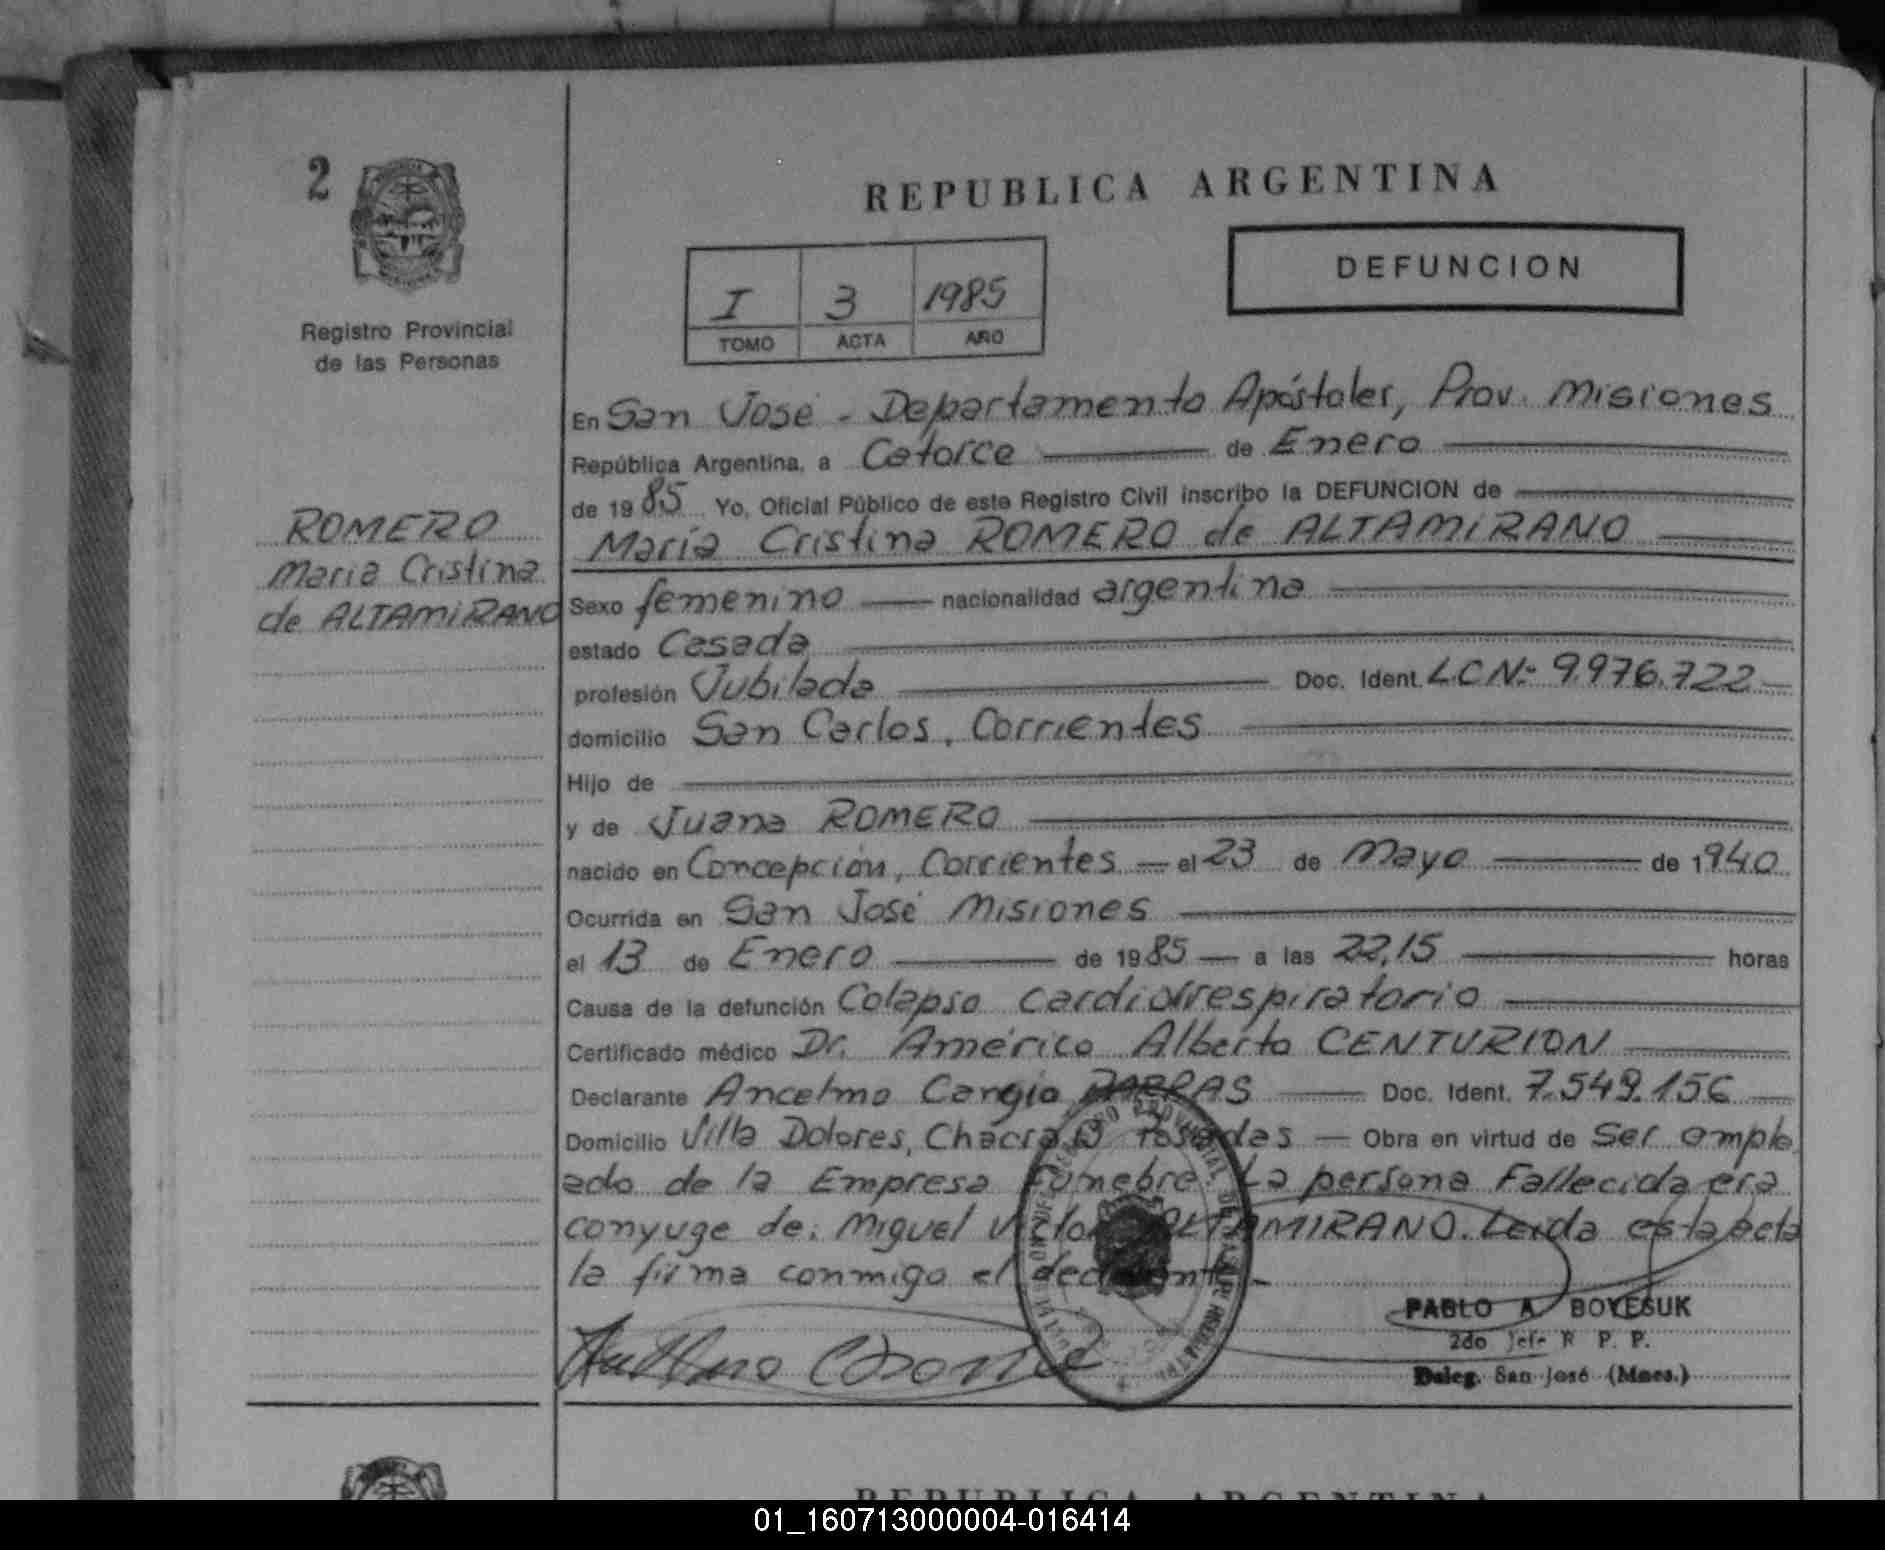 2
REPUBLICA ARGENTINA
DEFUNCION
I 3 1985
TOMO ACTA AÑO
Registro Provincial
de las Personas
ROMERO
María Cristina
de ALTAMIRANO
En San José - Departamento Apóstoles, Prov. Misiones
República Argentina, a Catorce de Enero
de 1985 Yo, Oficial Público de este Registro Civil inscribo la DEFUNCION de
María Cristina ROMERO de ALTAMIRANO
Sexo femenino nacionalidad argentina
estado Casada
profesión Jubilada Doc. Ident. L.C.Nº 9.976.722
domicilio San Carlos, Corrientes
Hijo de
y de Juana ROMERO
nacido en Concepción, Corrientes el 23 de Mayo de 1940
Ocurrida en San José Misiones
el 13 de Enero de 1985 a las 22,15 horas
Causa de la defunción Colapso cardiorrespiratorio
Certificado médico Dr. Américo Alberto CENTURION
Declarante Ancelmo Doc. Ident. 7.549.156
Domicilio Villa Dolores, Posadas Obra en virtud de Ser emple
ado de la Empresa Fúnebre La persona Fallecida era
conyuge de: Miguel ALTAMIRANO. Leída esta acta
la firma conmigo el declarante.-
PABLO A. BOYESUK
2do Jefe R. P. P.
Deleg. San José (Mnes.)
REPUBLICA ARGENTINA
01_160713000004-016414